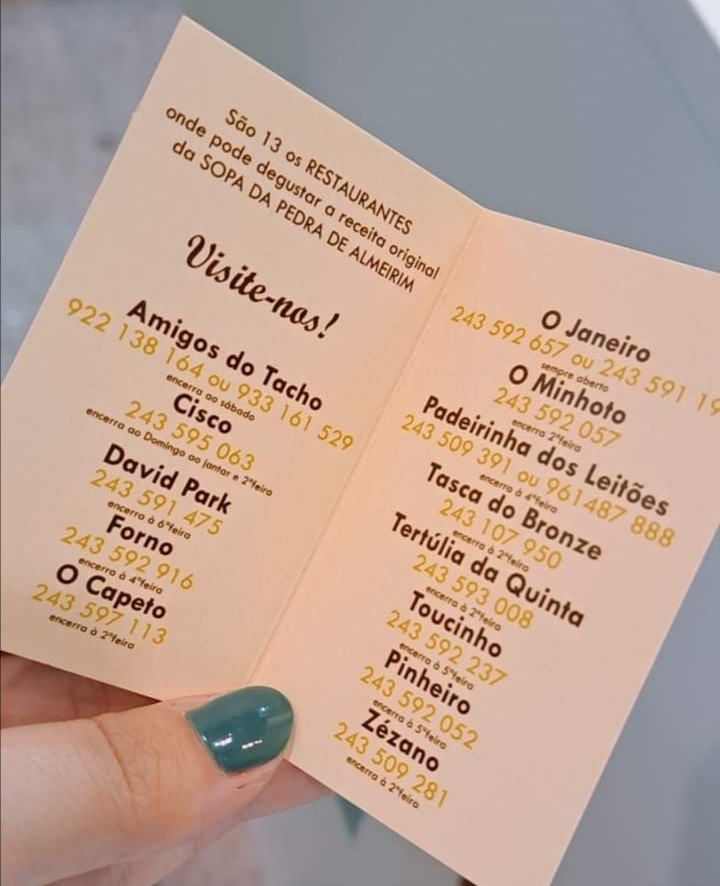 São 13 os RESTAURANTES
onde pode degustar a receita original
da SOPA DA PEDRA DE ALMEIRIM
Visite-nos!
Amigos do Tacho
922 138 164 ou 933 161 529
encerra ao sábado
Cisco
243 595 063
encerra ao Domingo ao jantar e 2ªfeira
David Park
243 591 475
encerra à 6ªfeira
Forno
243 592 916
encerra à 4ªfeira
O Capeto
243 597 113
encerra à 2ªfeira
O Janeiro
243 592 657 ou 243 591 19
sempre aberto
O Minhoto
243 592 057
encerra 2ªfeira
Padeirinha dos Leitões
243 509 391 ou 961487 888
encerra à 4ªfeira
Tasca do Bronze
243 107 950
encerra à 2ªfeira
Tertúlia da Quinta
243 593 008
encerra à 2ªfeira
Toucinho
243 592 237
encerra à 5ªfeira
Pinheiro
243 592 052
encerra à 5ªfeira
Zézano
243 509 281
encerra à 2ªfeira